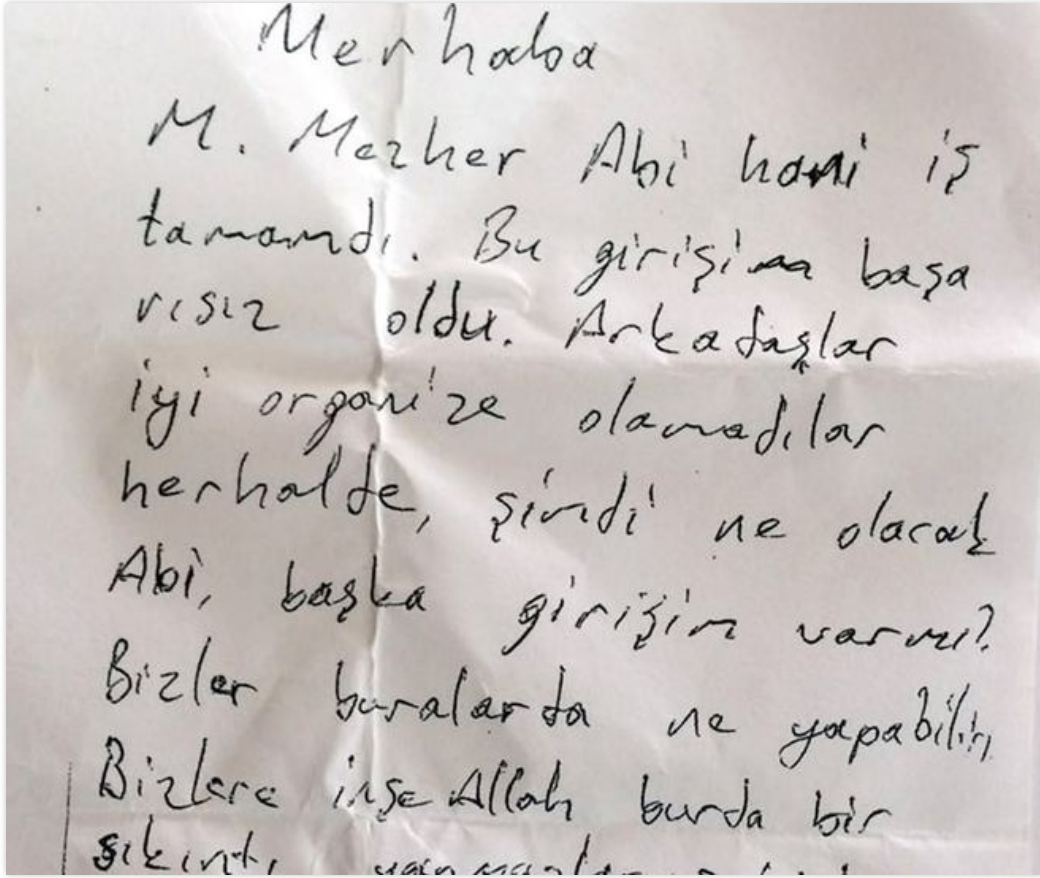 Merhaba
M. Mezher Abi hani iş
tamamdı. Bu girişim başa
rısız oldu. Arkadaşlar
iyi organize olamadılar
herhalde, şimdi ne olacak
Abi, başka girişim varmı?
Bizler buralarda ne yapabiliriz
Bizlere inşe Allah burda bir
sıkıntı